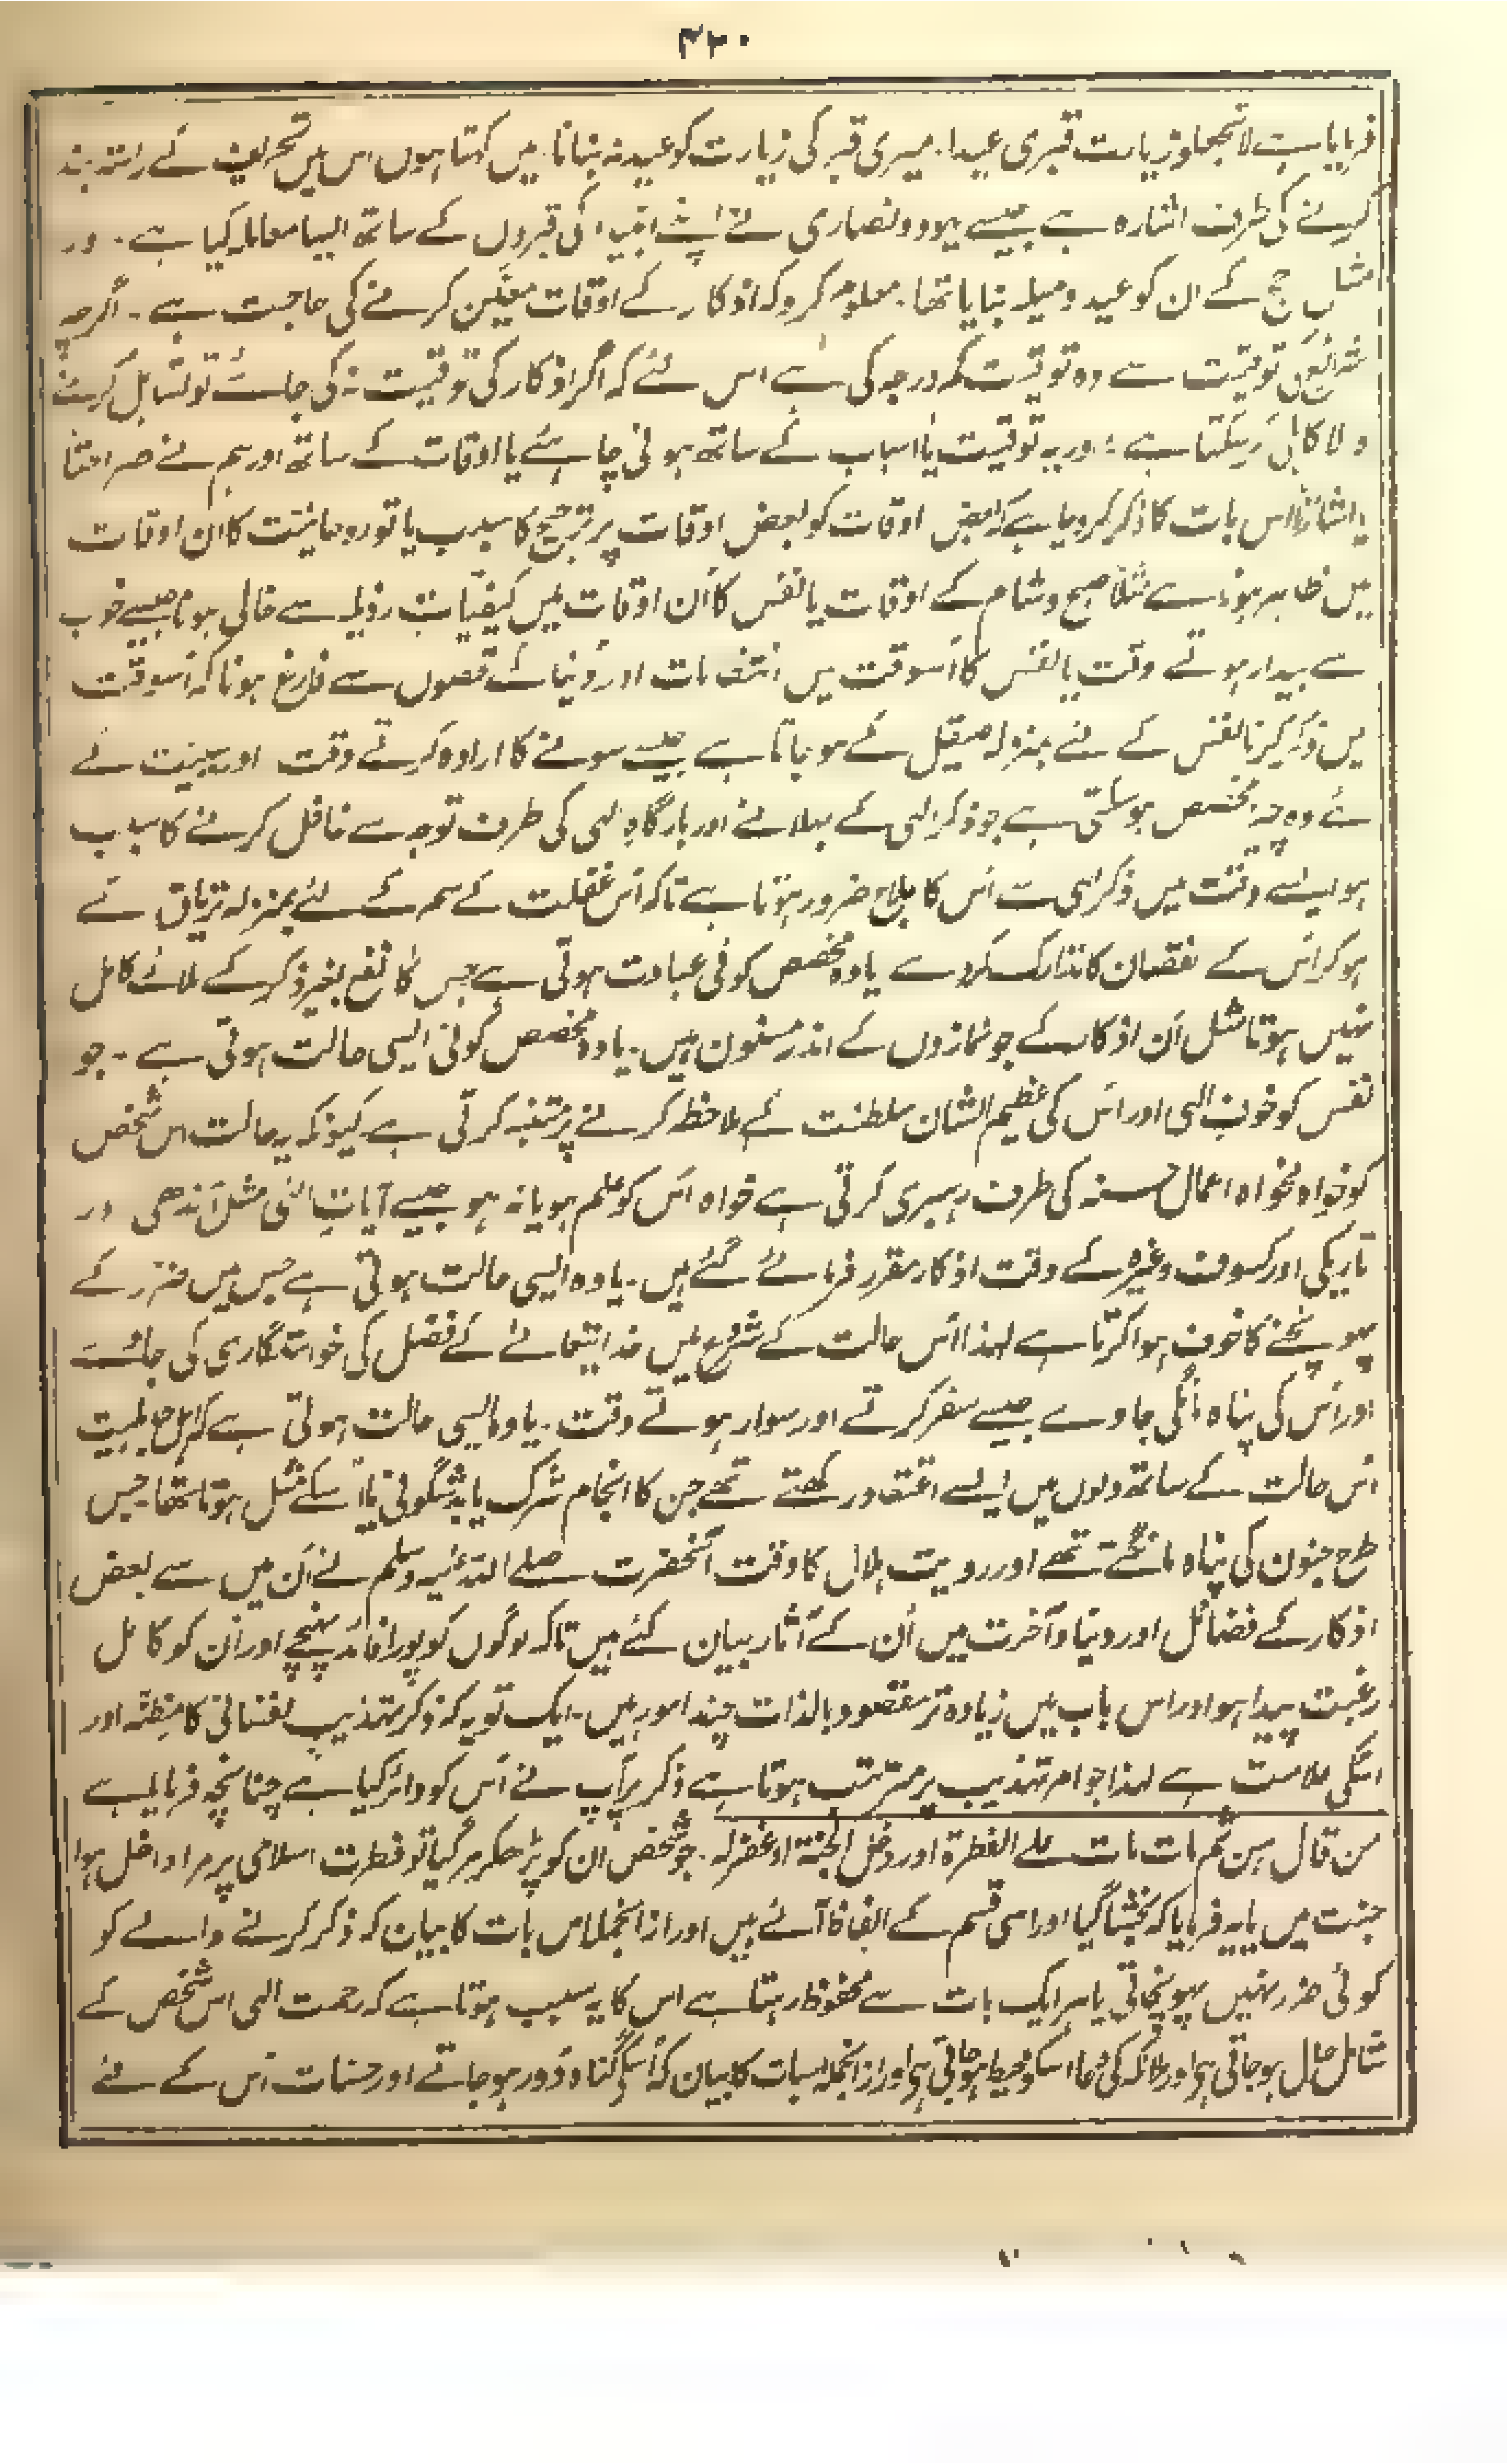 ۴۲۰
فرمایا ہے لا تجعلوا زیارت قبری عیدا۔ میری قبر کی زیارت کو عید نہ بنانا۔ میں کہتا ہوں اس میں تحریف کے راستہ بند
کرنے کی طرف اشارہ ہے جیسے یہود و نصاری نے اپنے انبیاء کی قبروں کے ساتھ ایسا معاملہ کیا ہے۔ اور
مثل حج کے ان کو عید و میلہ بنایا تھا۔ معلوم کرو کہ اذکار کے اوقات معیّن کرنے کی حاجت ہے۔ اگرچہ
شرائع کی توقیت سے وہ توقیت کم درجہ کی ہے اس لئے کہ اگر اذکار کی توقیت نہ کی جائے تو تساہل کرنے
والا کاہلی کر سکتا ہے؛ اور یہ توقیت یا اسباب کے ساتھ ہونی چاہئے یا اوقات کے ساتھ اور ہم نے صراحتاً
یا اشارتاً اس بات کا ذکر کر دیا ہے کہ بعض اوقات کو بعض اوقات پر ترجیح کا سبب یا تو روحانیت کا ان اوقات
میں ظاہر ہونا ہے مثلاً صبح و شام کے اوقات یا نفس کا اُن اوقات میں کیفیّات رذیلہ سے خالی ہونا جیسے خواب
سے بیدار ہوتے وقت یا نفس کا اُسوقت میں انتفاعات اور دُنیا کے قصوں سے فارغ ہونا کہ اُسوقت
میں ذکر کرنا نفس کے لئے بمنزلہ صیقل کے ہو جاتا ہے جیسے سونے کا ارادہ کرتے وقت اور سببیت کے
لئے وہ چیز مخصص ہو سکتی ہے جو ذکر الہی کے بھلانے اور بارگاہ الہی کی طرف توجہ سے غافل کرنے کا سبب
ہو ایسے وقت میں ذکر الہی سے اُس کا علاج ضرور ہوتا ہے تاکہ اُس غفلت کے سم کے لئے بمنزلہ تریاق کے
ہو کر اُس کے نقصان کا تدارک کر دے یا وہ مخصص کوئی عبادت ہوتی ہے جس کا نفع بغیر ذکر کے ملائے کامل
نہیں ہوتا مثل اُن اذکار کے جو نمازوں کے اندر مسنون ہیں۔ یا وہ مخصص کوئی ایسی حالت ہوتی ہے۔ جو
نفس کو خوف الہی اور اس کی عظیم الشان سلطنت کے ملاحظہ کرنے پر متنبہ کرتی ہے کیونکہ یہ حالت اس شخص
کو خواہ مخواہ اعمال حسنہ کی طرف رہبری کرتی ہے خواہ اس کو علم ہو یا نہ ہو جیسے آیات الٰہی مثل آندھی اور
تاریکی اور کسوف وغیرہ کے وقت اذکار مقرر فرمائے گئے ہیں۔ یا وہ ایسی حالت ہوتی ہے جس میں ضرر کے
پہونچنے کا خوف ہوا کرتا ہے لہذا اُس حالت کے شروع میں خدایتعالے کے فضل کی خواستگاری کی جائے
اور اُس کی پناہ مانگی جاوے جیسے سفر کرتے اور سوار ہوتے وقت۔ یا وہ ایسی حالت ہوتی ہے کہ اہل جاہلیت
اُس حالت کے ساتھ دلوں میں ایسے اعتقاد رکھتے تھے جن کا انجام شرک یا بدشگونی یا اُسکے مثل ہوتا تھا جس
طرح جنون کی پناہ مانگتے تھے اور رویت ہلال کا وقت آنحضرت صلے اللہ علیہ وسلم نے اُن میں سے بعض
اذکار کے فضائل اور دنیا و آخرت میں اُن کے آثار بیان کئے ہیں تاکہ لوگوں کو پورا فائدہ پہنچے اور اُن کو کامل
رغبت پیدا ہو اور اس باب میں زیادہ تر مقصود بالذات چند امور ہیں۔ ایک تو یہ کہ ذکر تہذیب نفسانی کا مظنّہ اور
اسکی علامت ہے لہذا جو امر تہذیب پر مترتب ہوتا ہے ذکر پر آپ نے اُس کو دائر کیا ہے چنانچہ فرمایا ہے
من قال ہن ثم مات مات علے الفطرۃ اور دخل الجنۃ او غفر لہ۔ جو شخص ان کو پڑھکر مر گیا تو فطرت اسلامی پر مرا و داخل ہوا
جنت میں یا یہ فرمایا کہ بخشا گیا اور اسی قسم کے الفاظ آئے ہیں اور ازانجملہ اس بات کا بیان کہ ذکر کرنے والے کو
کوئی ضرر نہیں پہونچاتی یا ہر ایک بات سے محفوظ رہتا ہے اس کا یہ سبب ہوتا ہے کہ رحمت الہی اس شخص کے
شامل حال ہو جاتی ہی اور ملائکہ کی دعا اسکو محیط ہو جاتی ہی اور ازانجملہ اسبات کا بیان کہ اُسکے گناہ دُور ہو جاتے اور حسنات اُس کے لئے